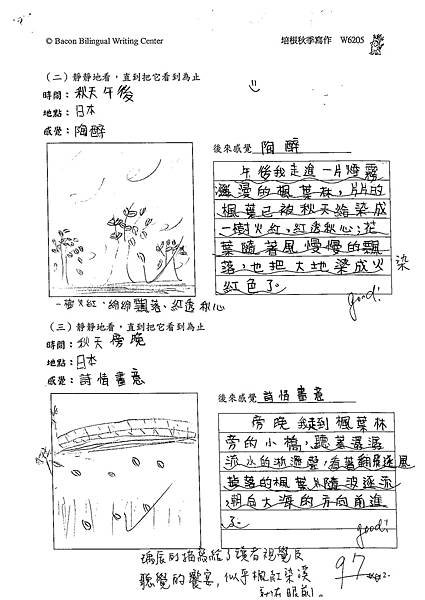 © Bacon Bilingual Writing Center
培根秋季寫作 W6205
(二)靜靜地看,直到把它看到為止
時間:秋天午後
地點:日本
感覺:陶醉
後來感覺 陶醉
午後我走進一片煙霧
瀰漫的楓葉林,片片的
楓葉已被秋天給染成
一樹火紅,紅透秋心;花
葉隨著風慢慢的飄
落,也把大地染成火
染
紅色了。
good!
一樹火紅、綿綿飄落、紅透秋心
(三)靜靜地看,直到把它看到為止
時間:秋天傍晚
地點:日本
感覺:詩情畫意
後來感覺 詩情畫意
傍晚我走到楓葉林
旁的小橋,聽著潺潺
流水的聲,看著風
掉落的楓葉隨波逐流
朝向大海的方向前進
了。
good!
的描敘給了讀者視覺及
聽覺的饗宴,似乎楓紅染溪
就在眼前。
97